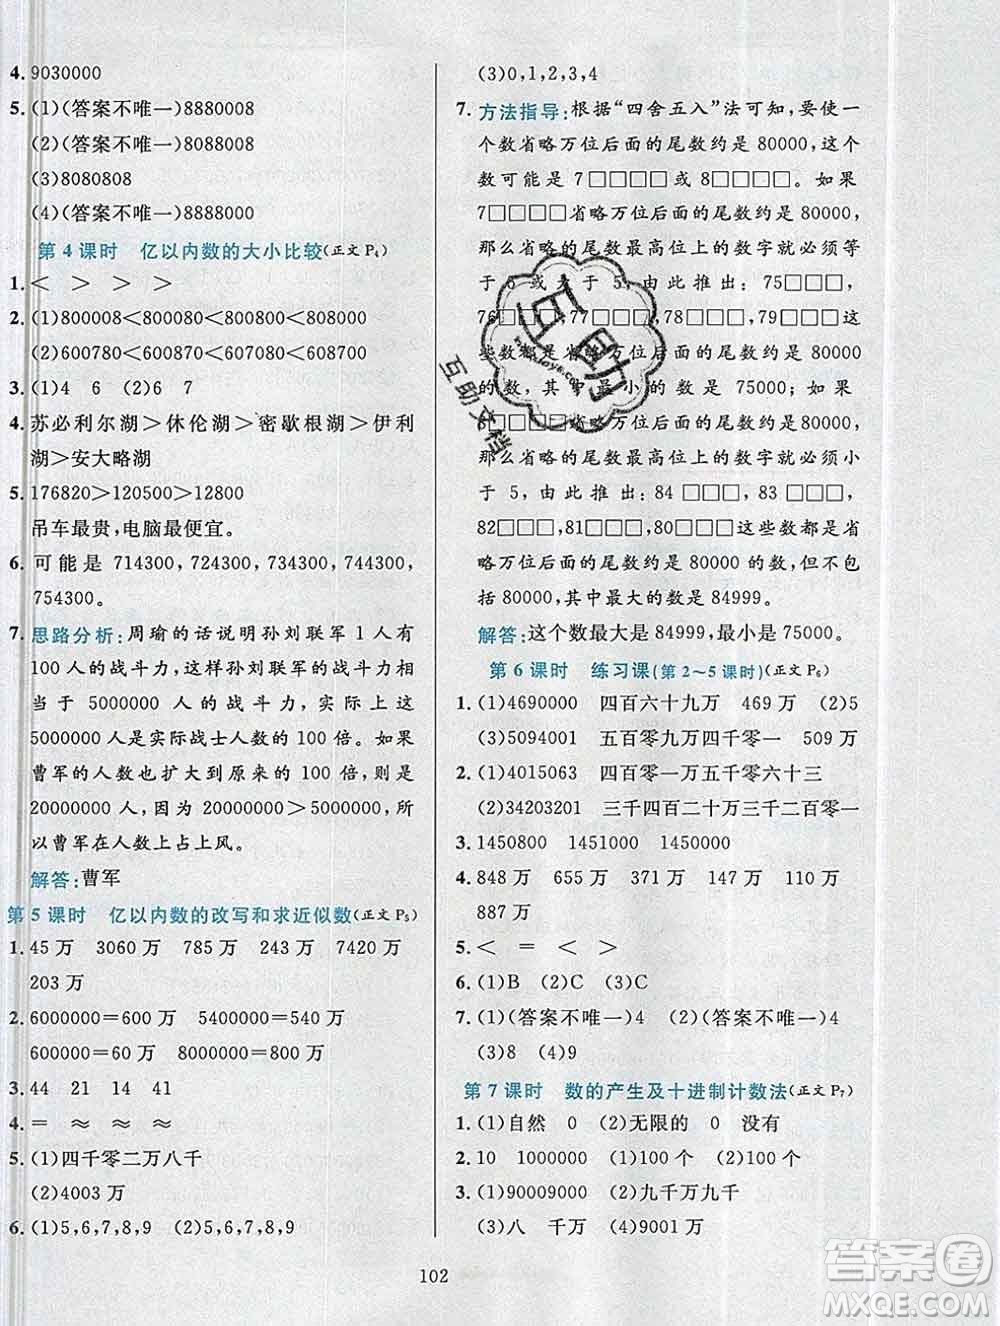 4. 9030000
5. (1)(答案不唯一)8880008
(2)(答案不唯一)8088008
(3)8080808
(4)(答案不唯一)8888000
第 4 课时 亿以内数的大小比较(正文 P₄)
1. < > > >
2. (1)800008<800080<800800<808000
(2)600780<607080<607800<678000
3. (1)4 6 (2)6 7
4. 苏必利尔湖>休伦湖>密歇根湖>伊利
湖>安大略湖
5. 176820>120500>12800
吊车最贵,电脑最便宜。
6. 可能是 714300,724300,734300,744300,
754300。
7. 思路分析:周瑜的话说明孙刘联军 1 人有
100 人的战斗力,这样孙刘联军的实际战斗
力相当于 5000000 人的战斗力,实际上
5000000 人是实际战士人数的 100 倍。如果
曹军的人数也扩大到原来的 100 倍,则是
20000000 人,因为 20000000>5000000,所
以曹军在人数上占上风。
解答:曹军
第 5 课时 亿以内数的改写和求近似数(正文 P₅)
1. 45 万 3060 万 785 万 243 万 7420 万
203 万
2. 6000000=600 万 5400000=540 万
600000=60 万 8000000=800 万
3. 44 21 14 144
4. = ≈ ≈ ≈
5. (1)四千零二万八千
(2)4003 万
6. (1)5,6,7,8,9 (2)5,6,7,8,9
(3)0,1,2,3,4
7. 方法指导:根据“四舍五入”法可知,要使一
个数省略万位后面的尾数约是 80000,这个
数可能是 7□□□□或 8□□□□。如果
7□□□□省略万位后面的尾数约是 80000,
那么省略的尾数最高位上的数字就必须等
于 5 或大于 5,由此推出:75□□□,
76□□□,77□□□,78□□□,79□□□这
些数都是省略万位后面的尾数约是 80000
的数,但不包括 80000,其中最小是 75000。如果
8□□□□省略万位后面的尾数约是 80000,
那么省略的尾数最高位上的数字就必须小
于 5,由此推出:84 □□□,83 □□□,
82□□□,81□□□,80□□□这些数都是省
略万位后面的尾数约是 80000 的数,但不包
括 80000,其中最大的数是 84999。
解答:这个数最大是 84999,最小是 75000。
第 6 课时 练习课(第 2～5 课时)(正文 P₆)
1. (1)4690000 四百六十九万 469 万 (2)5
(3)5094001 五百零九万四千零一 509万
2. (1)4015063 四百零一万五千零六十三
(2)34203201 三千四百二十万三千二百零一
3. 1450800 1451000 1450000
4. 848 万 655 万 702 万 147 万 110 万
887 万
5. < = > <
6. (1)B (2)C (3)C
7. (1)(答案不唯一)4 (2)(答案不唯一)4
(3)8 (4)9
第 7 课时 数的产生及十进制计数法(正文 P₇)
1. (1)自然 0 (2)无限的 0 没有
2. 10 1000000 (1)100 个 (2)100 个
3. (1)90009000 (2)九千万九千
(3)八 千万 (4)9001 万
102
互助
互助文档
答案圈
MXQE.COM